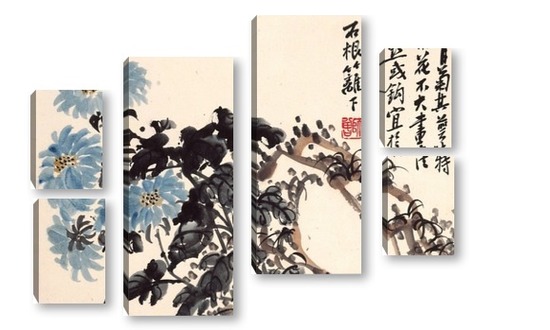 菊其葉特
花不大畫法
或鈎宜於
石根籬下